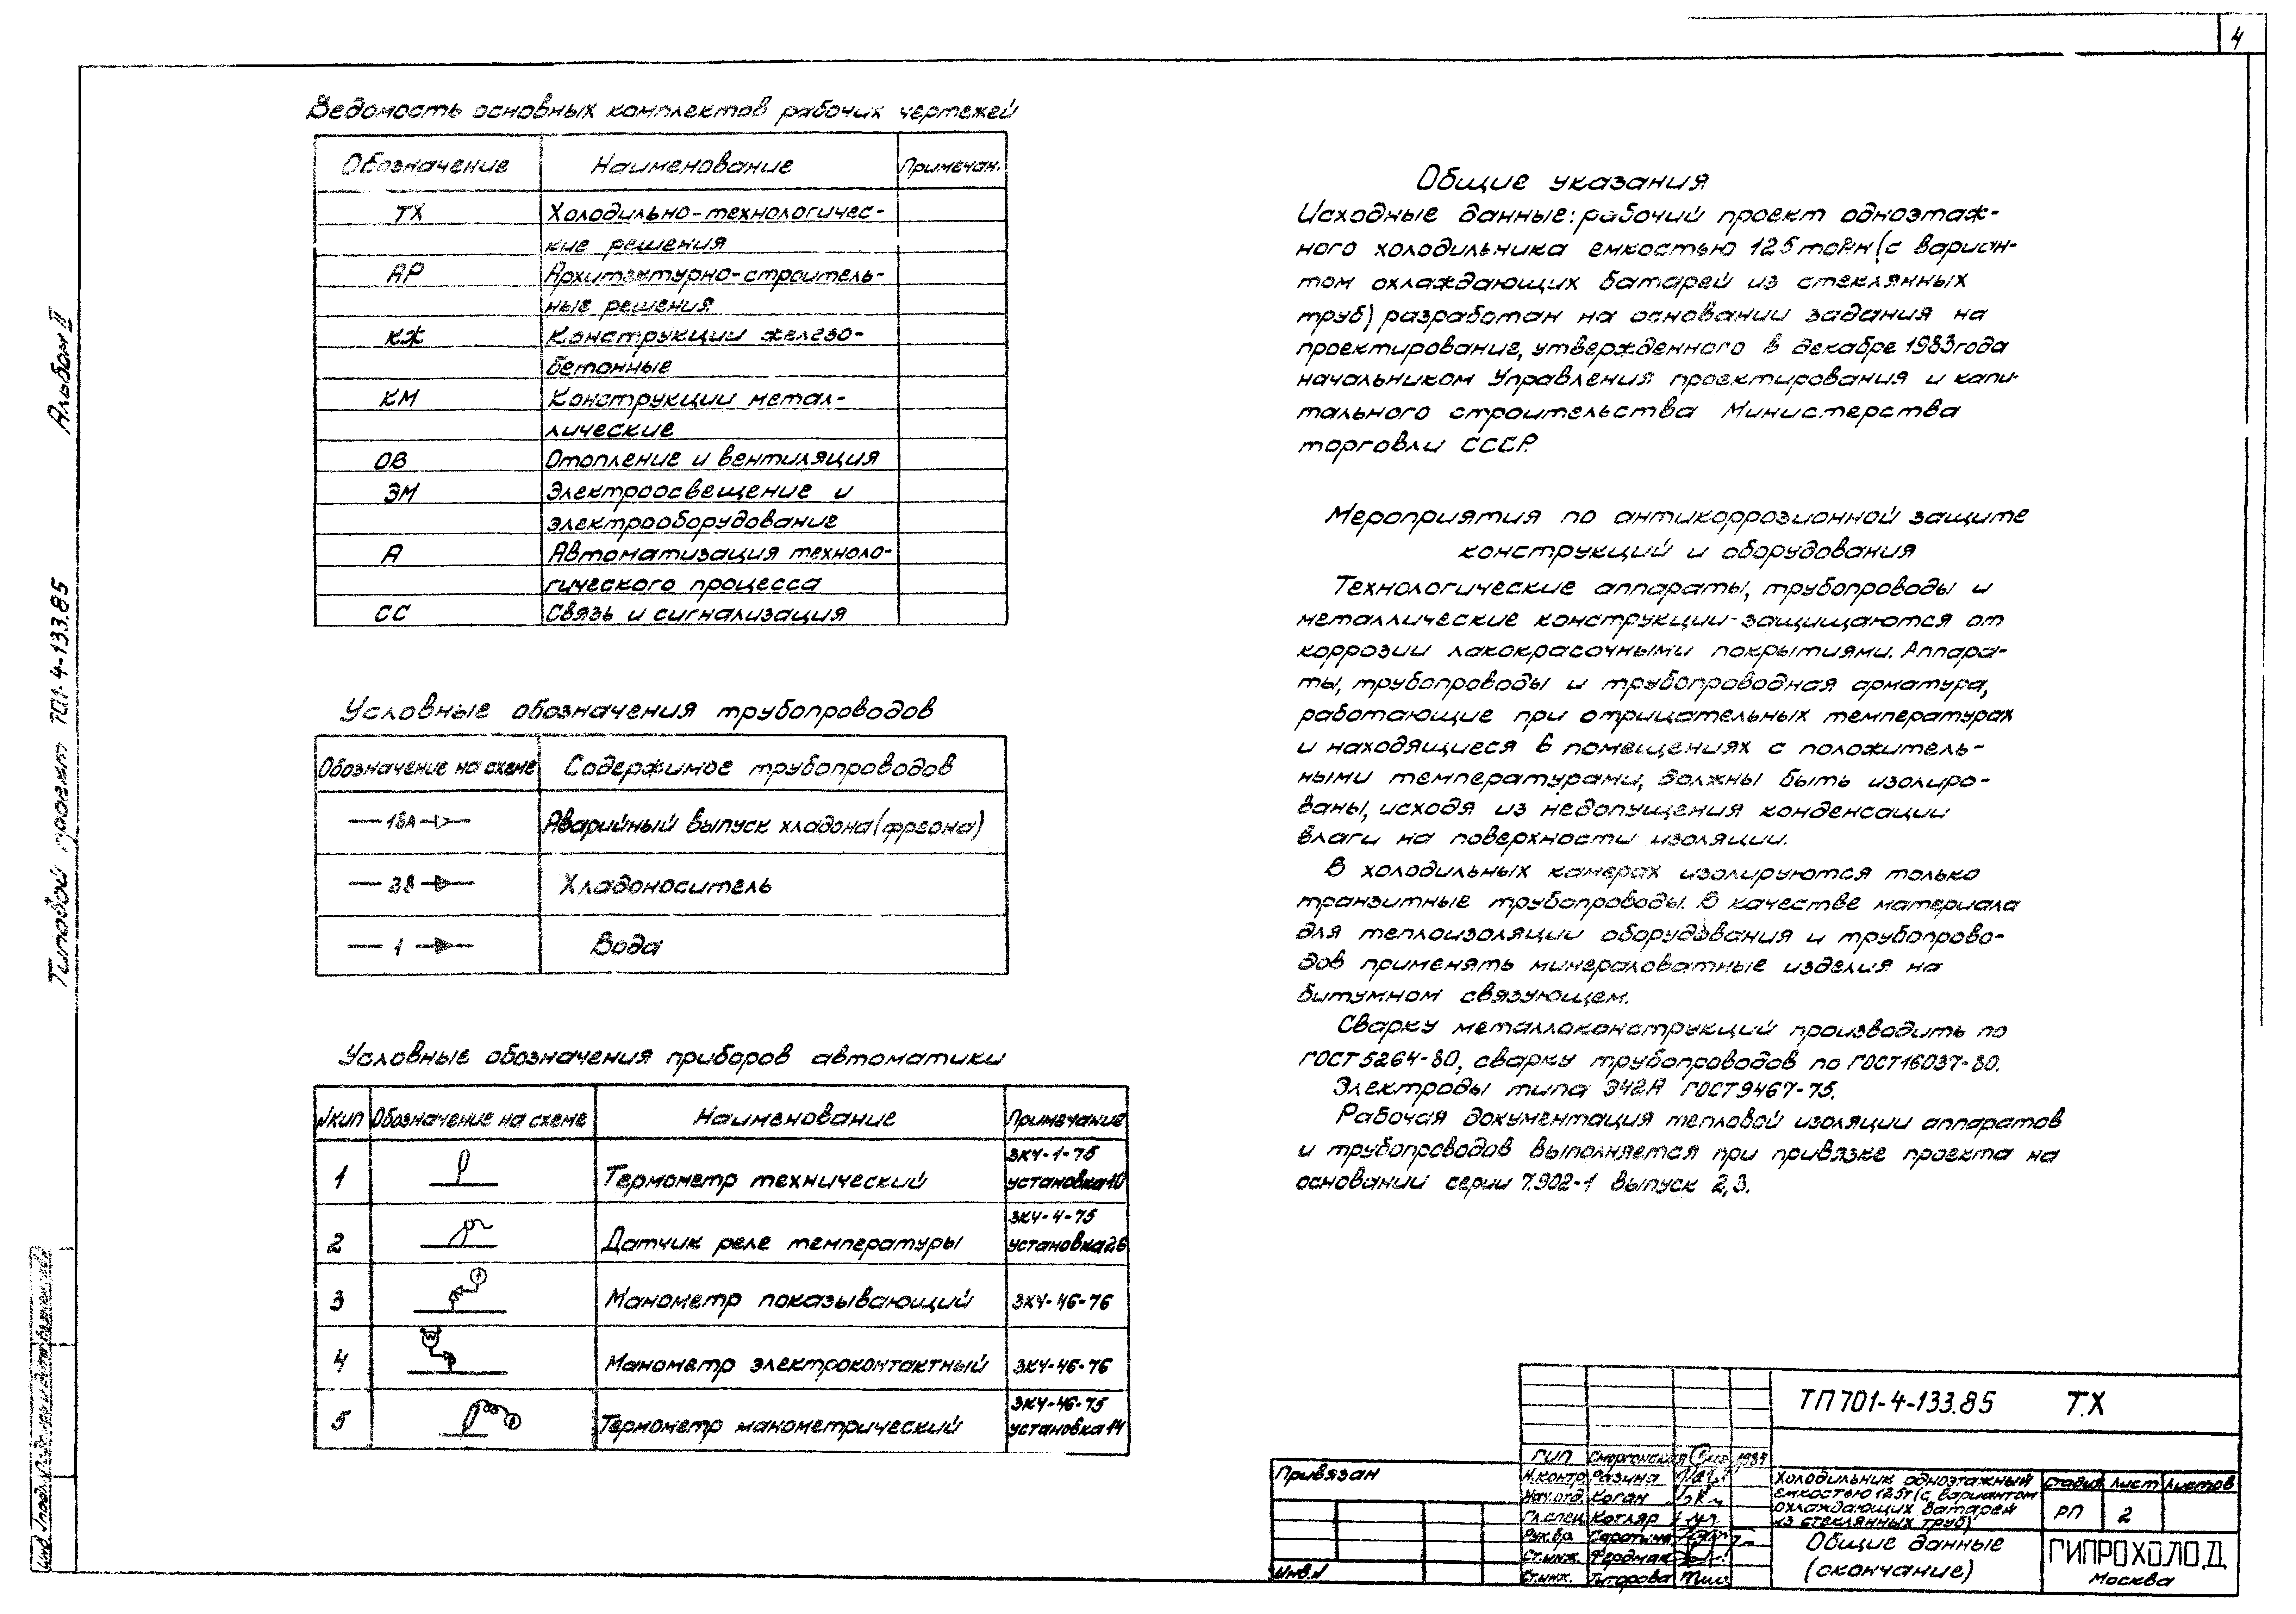 4
Альбом II
Типовой проект 701-4-133.85
Ведомость основных комплектов рабочих чертежей
Обозначение Наименование Примечан.
ТХ Холодильно-технологичес-
кие решения
АР Архитектурно-строитель-
ные решения
КЖ Конструкции железо-
бетонные
КМ Конструкции метал-
лические
ОВ Отопление и вентиляция
ЭМ Электроосвещение и
электрооборудование
А Автоматизация техноло-
гического процесса
СС Связь и сигнализация
Условные обозначения трубопроводов
Обозначение на схеме Содержимое трубопроводов
Аварийный выпуск хладона (фреона)
28 Хладоноситель
1 Вода
Условные обозначения приборов автоматики
N КИП Обозначение на схеме Наименование Примечание
1 Термометр технический ЗК4-1-75
установка 10
2 Датчик реле температуры ЗК4-4-75
установка 26
3 Манометр показывающий ЗК4-46-76
4 Манометр электроконтактный ЗК4-46-76
5 Термометр манометрический ЗК4-46-75
установка 14
Общие указания
Исходные данные: рабочий проект одноэтаж-
ного холодильника емкостью 125 тонн (с вариан-
том охлаждающих батарей из стеклянных
труб) разработан на основании задания на
проектирование, утвержденного в декабре 1983 года
начальником Управления проектирования и капи-
тального строительства Министерства
торговли СССР.
Мероприятия по антикоррозионной защите
конструкций и оборудования
Технологические аппараты, трубопроводы и
металлические конструкции защищаются от
коррозии лакокрасочными покрытиями. Аппара-
ты, трубопроводы и трубопроводная арматура,
работающие при отрицательных температурах
и находящиеся в помещениях с положитель-
ными температурами, должны быть изолиро-
ваны, исходя из недопущения конденсации
влаги на поверхности изоляции.
В холодильных камерах изолируются только
транзитные трубопроводы. В качестве материала
для теплоизоляции оборудования и трубопрово-
дов применять минераловатные изделия на
битумном связующем.
Сварку металлоконструкций производить по
ГОСТ 5264-80, сварку трубопроводов по ГОСТ 16037-80.
Электроды типа Э42А ГОСТ 9467-75.
Рабочая документация тепловой изоляции аппаратов
и трубопроводов выполняется при привязке проекта на
основании серии 7.902-1 выпуск 2,3.
ТП 701-4-133.85 ТХ
Привязан
Инв.N
ГИП Сморгонская 1984
Н.контр Разина
Нач.отд. Коган
Гл.спец Котляр
Рук.бр.
Ст.инж. Фердман
Ст.инж. Титорова
Холодильник одноэтажный
емкостью 125т (с вариантом
охлаждающих батарей
из стеклянных труб)
Стадия Лист Листов
РП 2
Общие данные
(окончание)
ГИПРОХОЛОД
Москва